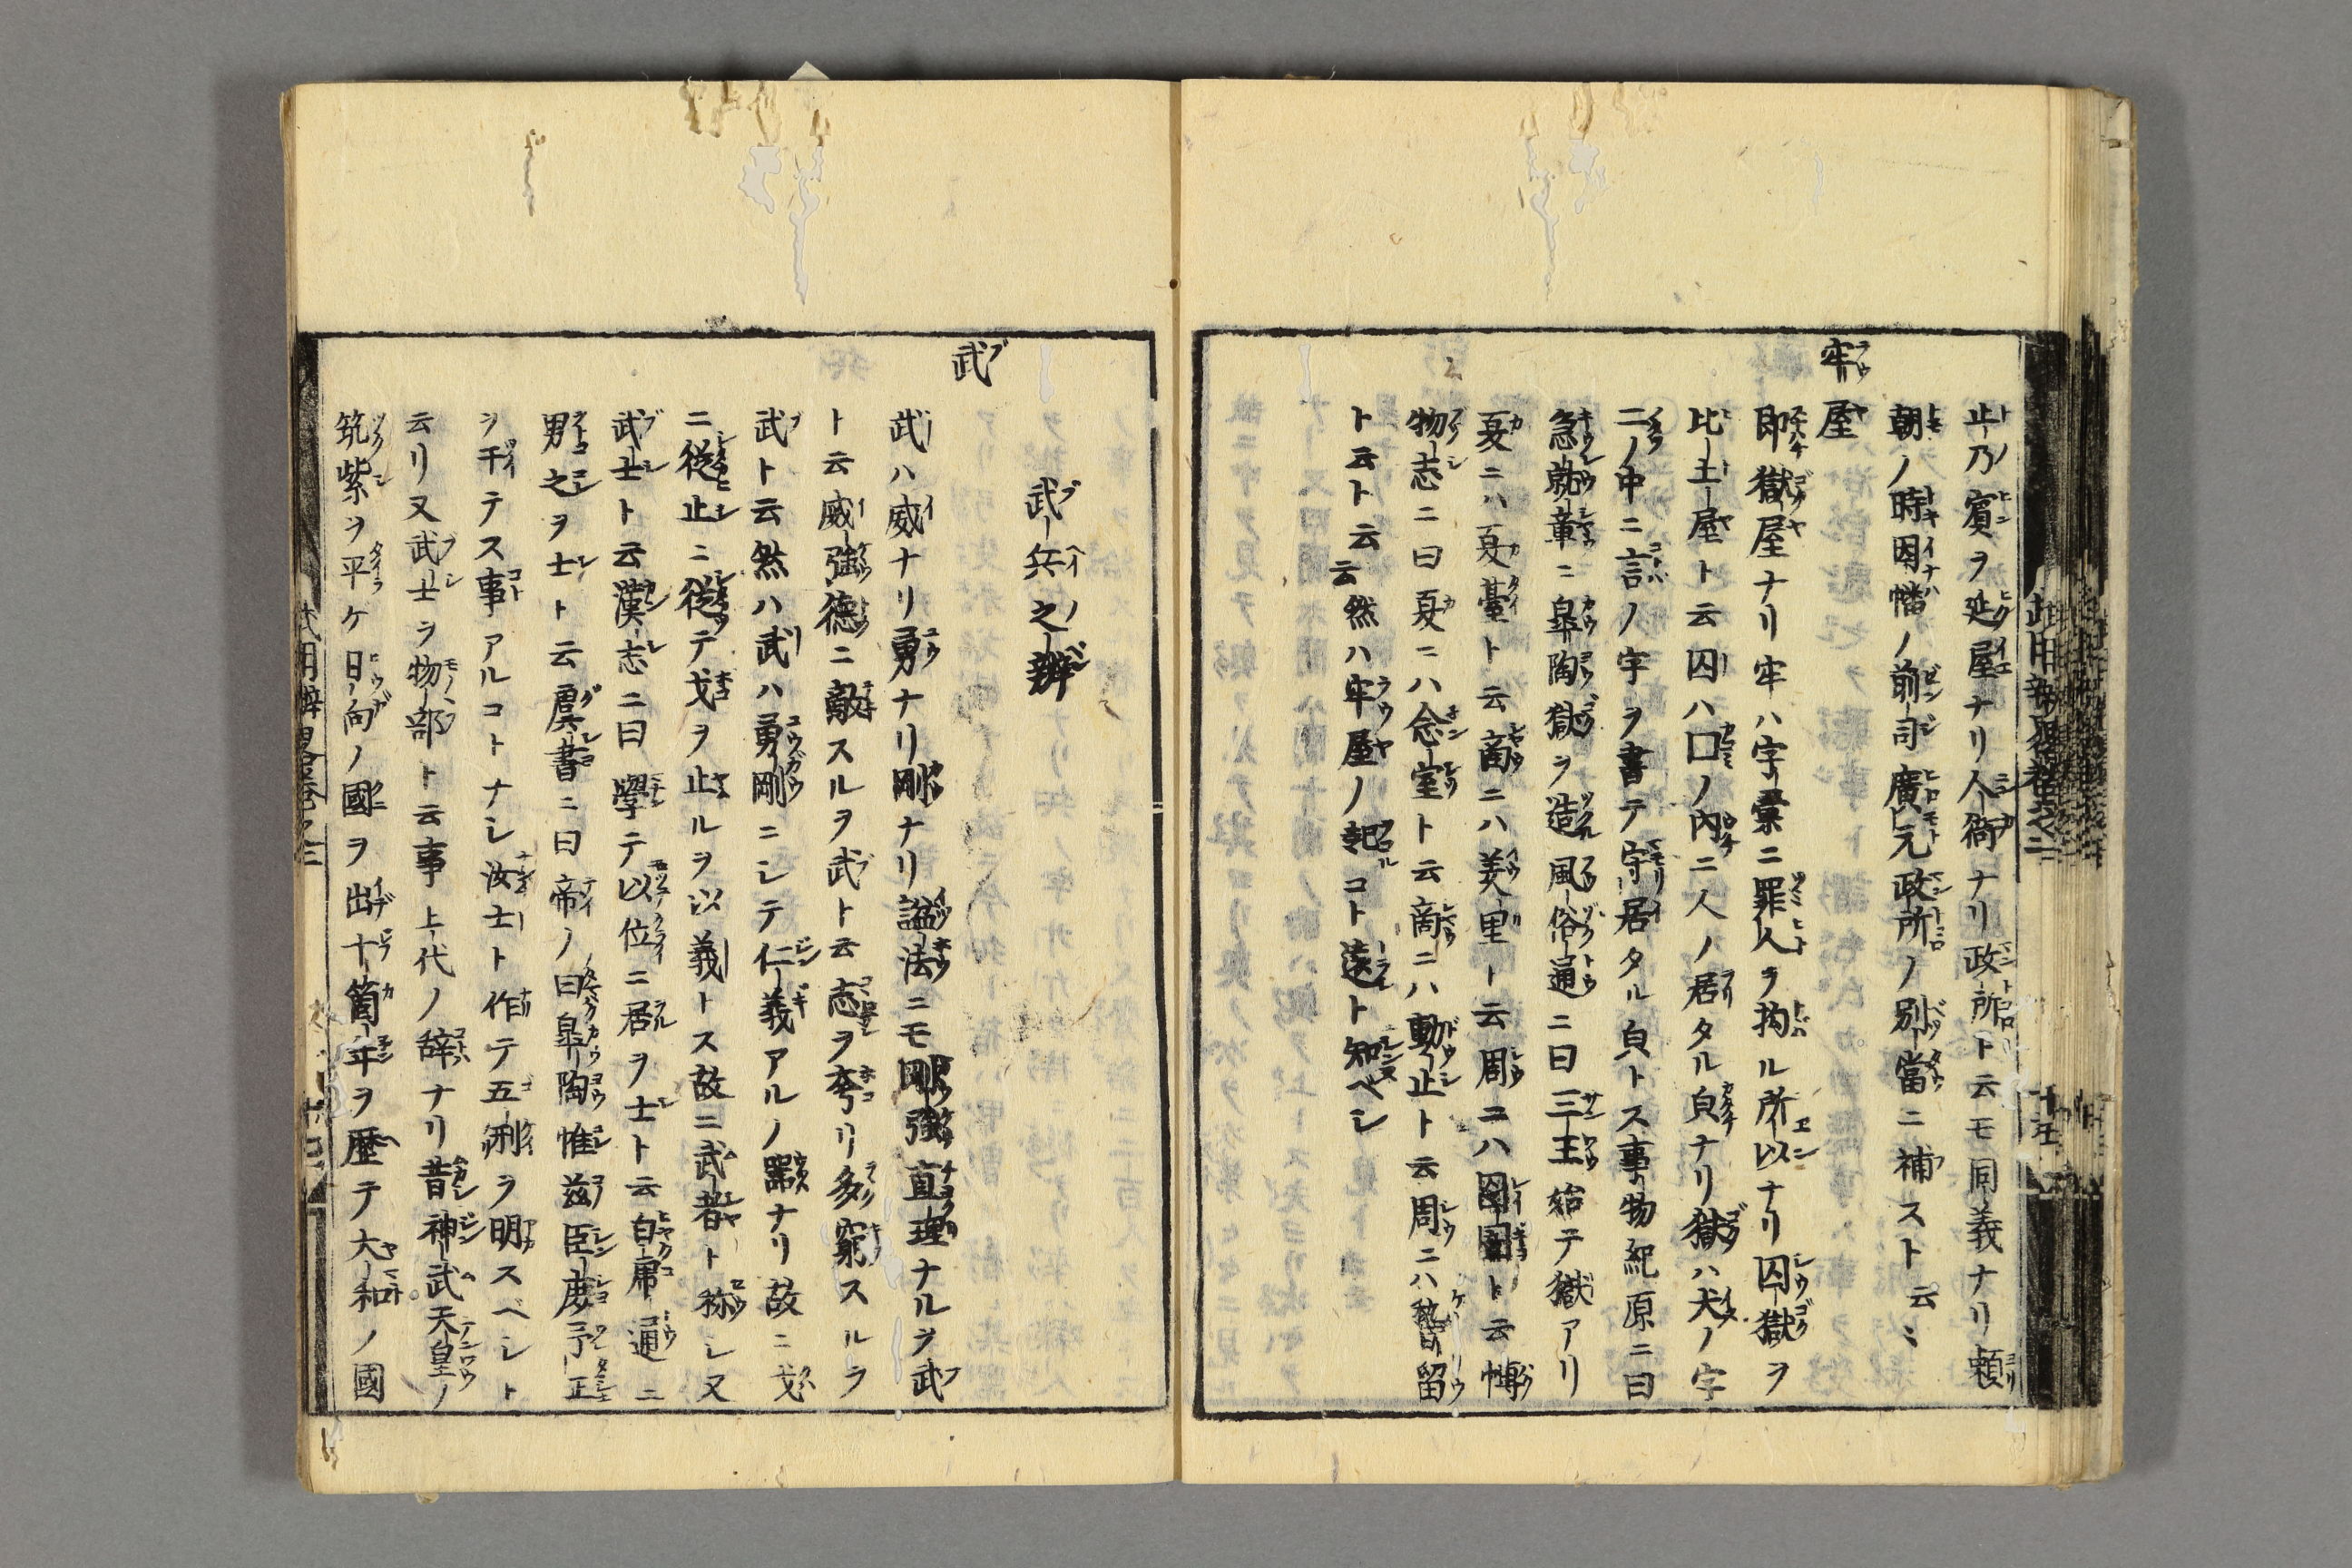 止乃賓ヲ延屋ナリ人衙ナリ政所ト云モ同義ナリ頼
朝ノ時因幡ノ前司廣元政所ノ別當ニ補スト云々
牢屋
即獄屋ナリ牢ハ字彙ニ罪人ヲ拘ル所以ナリ囚獄ヲ
比土屋ト云囚ハ囗ノ內ニ人ノ居タル㒵ナリ獄ハ犬ノ字
二ノ中ニ言ノ字ヲ書テ守居タル㒵トス事物紀原ニ曰
急就章ニ皐陶獄ヲ造風俗通ニ曰三王始テ獄アリ
夏ニハ夏臺ト云商ニハ羑里ト云周ニハ囹圄ト云博
物志ニ曰夏ニハ念室ト云商ニハ動止ト云周ニハ稽留
ト云ト云云然ハ牢屋ノ起コト遠ト知ベシ
武兵之辨
武
武ハ威ナリ勇ナリ剛ナリ謚法ニモ剛強直理ナルヲ武
ト云威強德ニ敵スルヲ武ト云志ヲ夸リ多窮スルヲ
武ト云然ハ武ハ勇剛ニシテ仁義アルノ器ナリ故ニ戈
ニ從止ニ從テ戈ヲ止ルヲ以義トス故ニ武者ト称シ又
武士ト云漢志ニ曰學テ以位ニ居ヲ士ト云白虎通ニ
男之ヲ士ト云虞書ニ曰帝ノ曰皐陶惟茲臣庻予正
ヲ干テス事アルコトナシ汝士ト作テ五刑ヲ明スベシト
云リ又武士ヲ物部ト云事上代ノ辞ナリ昔神武天皇ノ
筑紫ヲ平ケ日向ノ國ヲ出十箇年ヲ歴テ大和ノ國